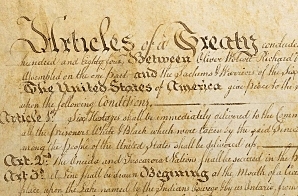 Articles of a Treaty conclude
hundred and eighty four, Between Oliver Wolcott Richard
Assembled on the one Part and the Sachems & Warriors of the Six
The United States of America give peace to the
upon the following Conditions,
Article 1st Six Hostages shall be immediately delivered to the Commis
all the Prisoners White & Black which were taken by the said Senec
among the People of the United States shall be delivered up
Art. 2d the Oneida and Tuscarora Nations shall be secured in the
Art. 3d A Line shall be drawn Beginning at the Mouth of a
place upon the Lake named by the Indian